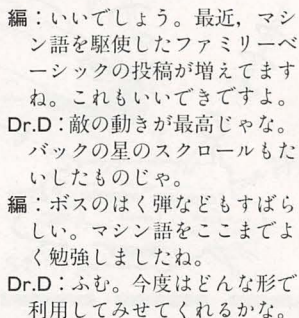 編：いいでしょう。最近，マシ
ン語を駆使したファミリーベ
ーシックの投稿が増えてます
ね。これもいいできですよ。
Dr.D：敵の動きが最高じゃな。
バックの星のスクロールもた
いしたものじゃ。
編：ボスのはく弾などもすばら
しい。マシン語をここまでよ
く勉強しましたね。
Dr.D：ふむ。今度はどんな形で
利用してみせてくれるかな。